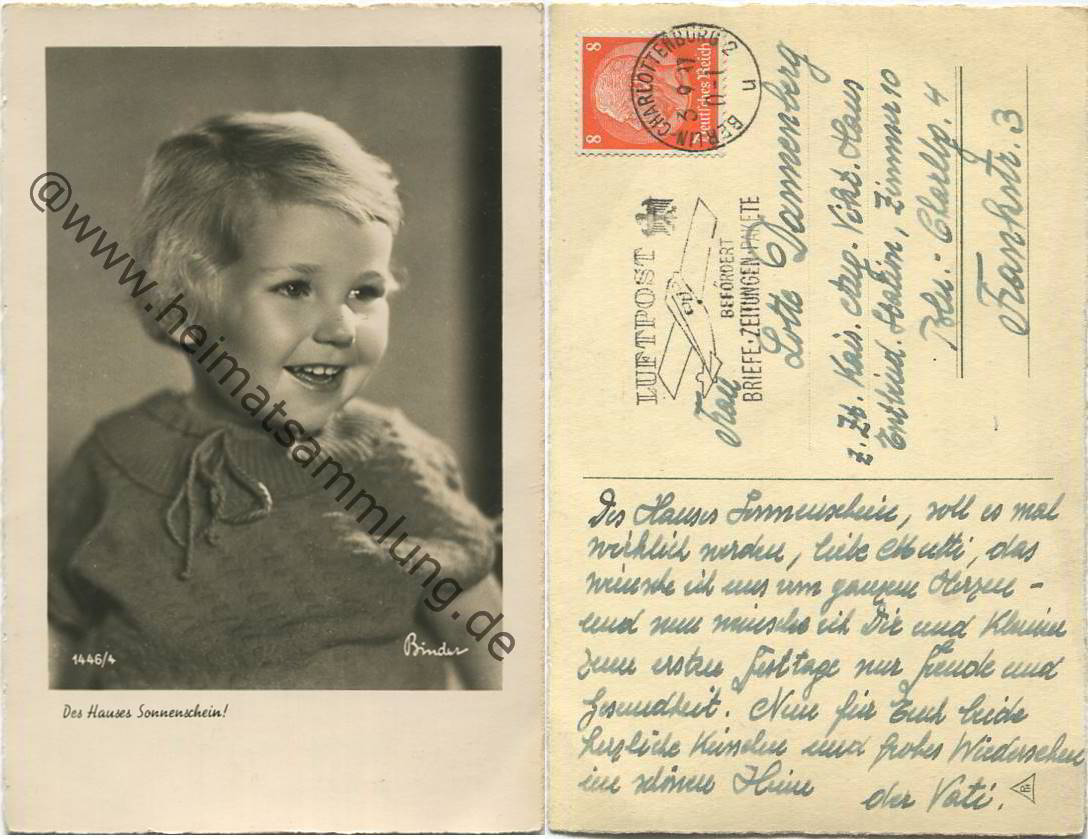 @www.heimatsammlung.de
1446/4
Binder
Des Hauses Sonnenschein!
8
8
Deutsches Reich
BERLIN-CHARLOTTENBURG 2
3.9.
u
LUFTPOST
BEFÖRDERT
BRIEFE-ZEITUNGEN-PAKETE
Lotte Dannenberg
z. Zt. Kais. Aug. Vikt. Haus
Entbind. Station, Zimmer 10
Bln.-Charlbg. 4
Frankstr. 3
Des Hauses Sonnenschein, soll es mal
wirklich werden, liebe Mutti, das
wünsche ich uns vom ganzen Herzen -
und nun wünsche ich Dir und Kleinen
zum ersten Festtage nur Freude und
Gesundheit. Nun für Euch beide
herzliche Küsschen und frohes Wiedersehen
im schönen Heim
der Vati.